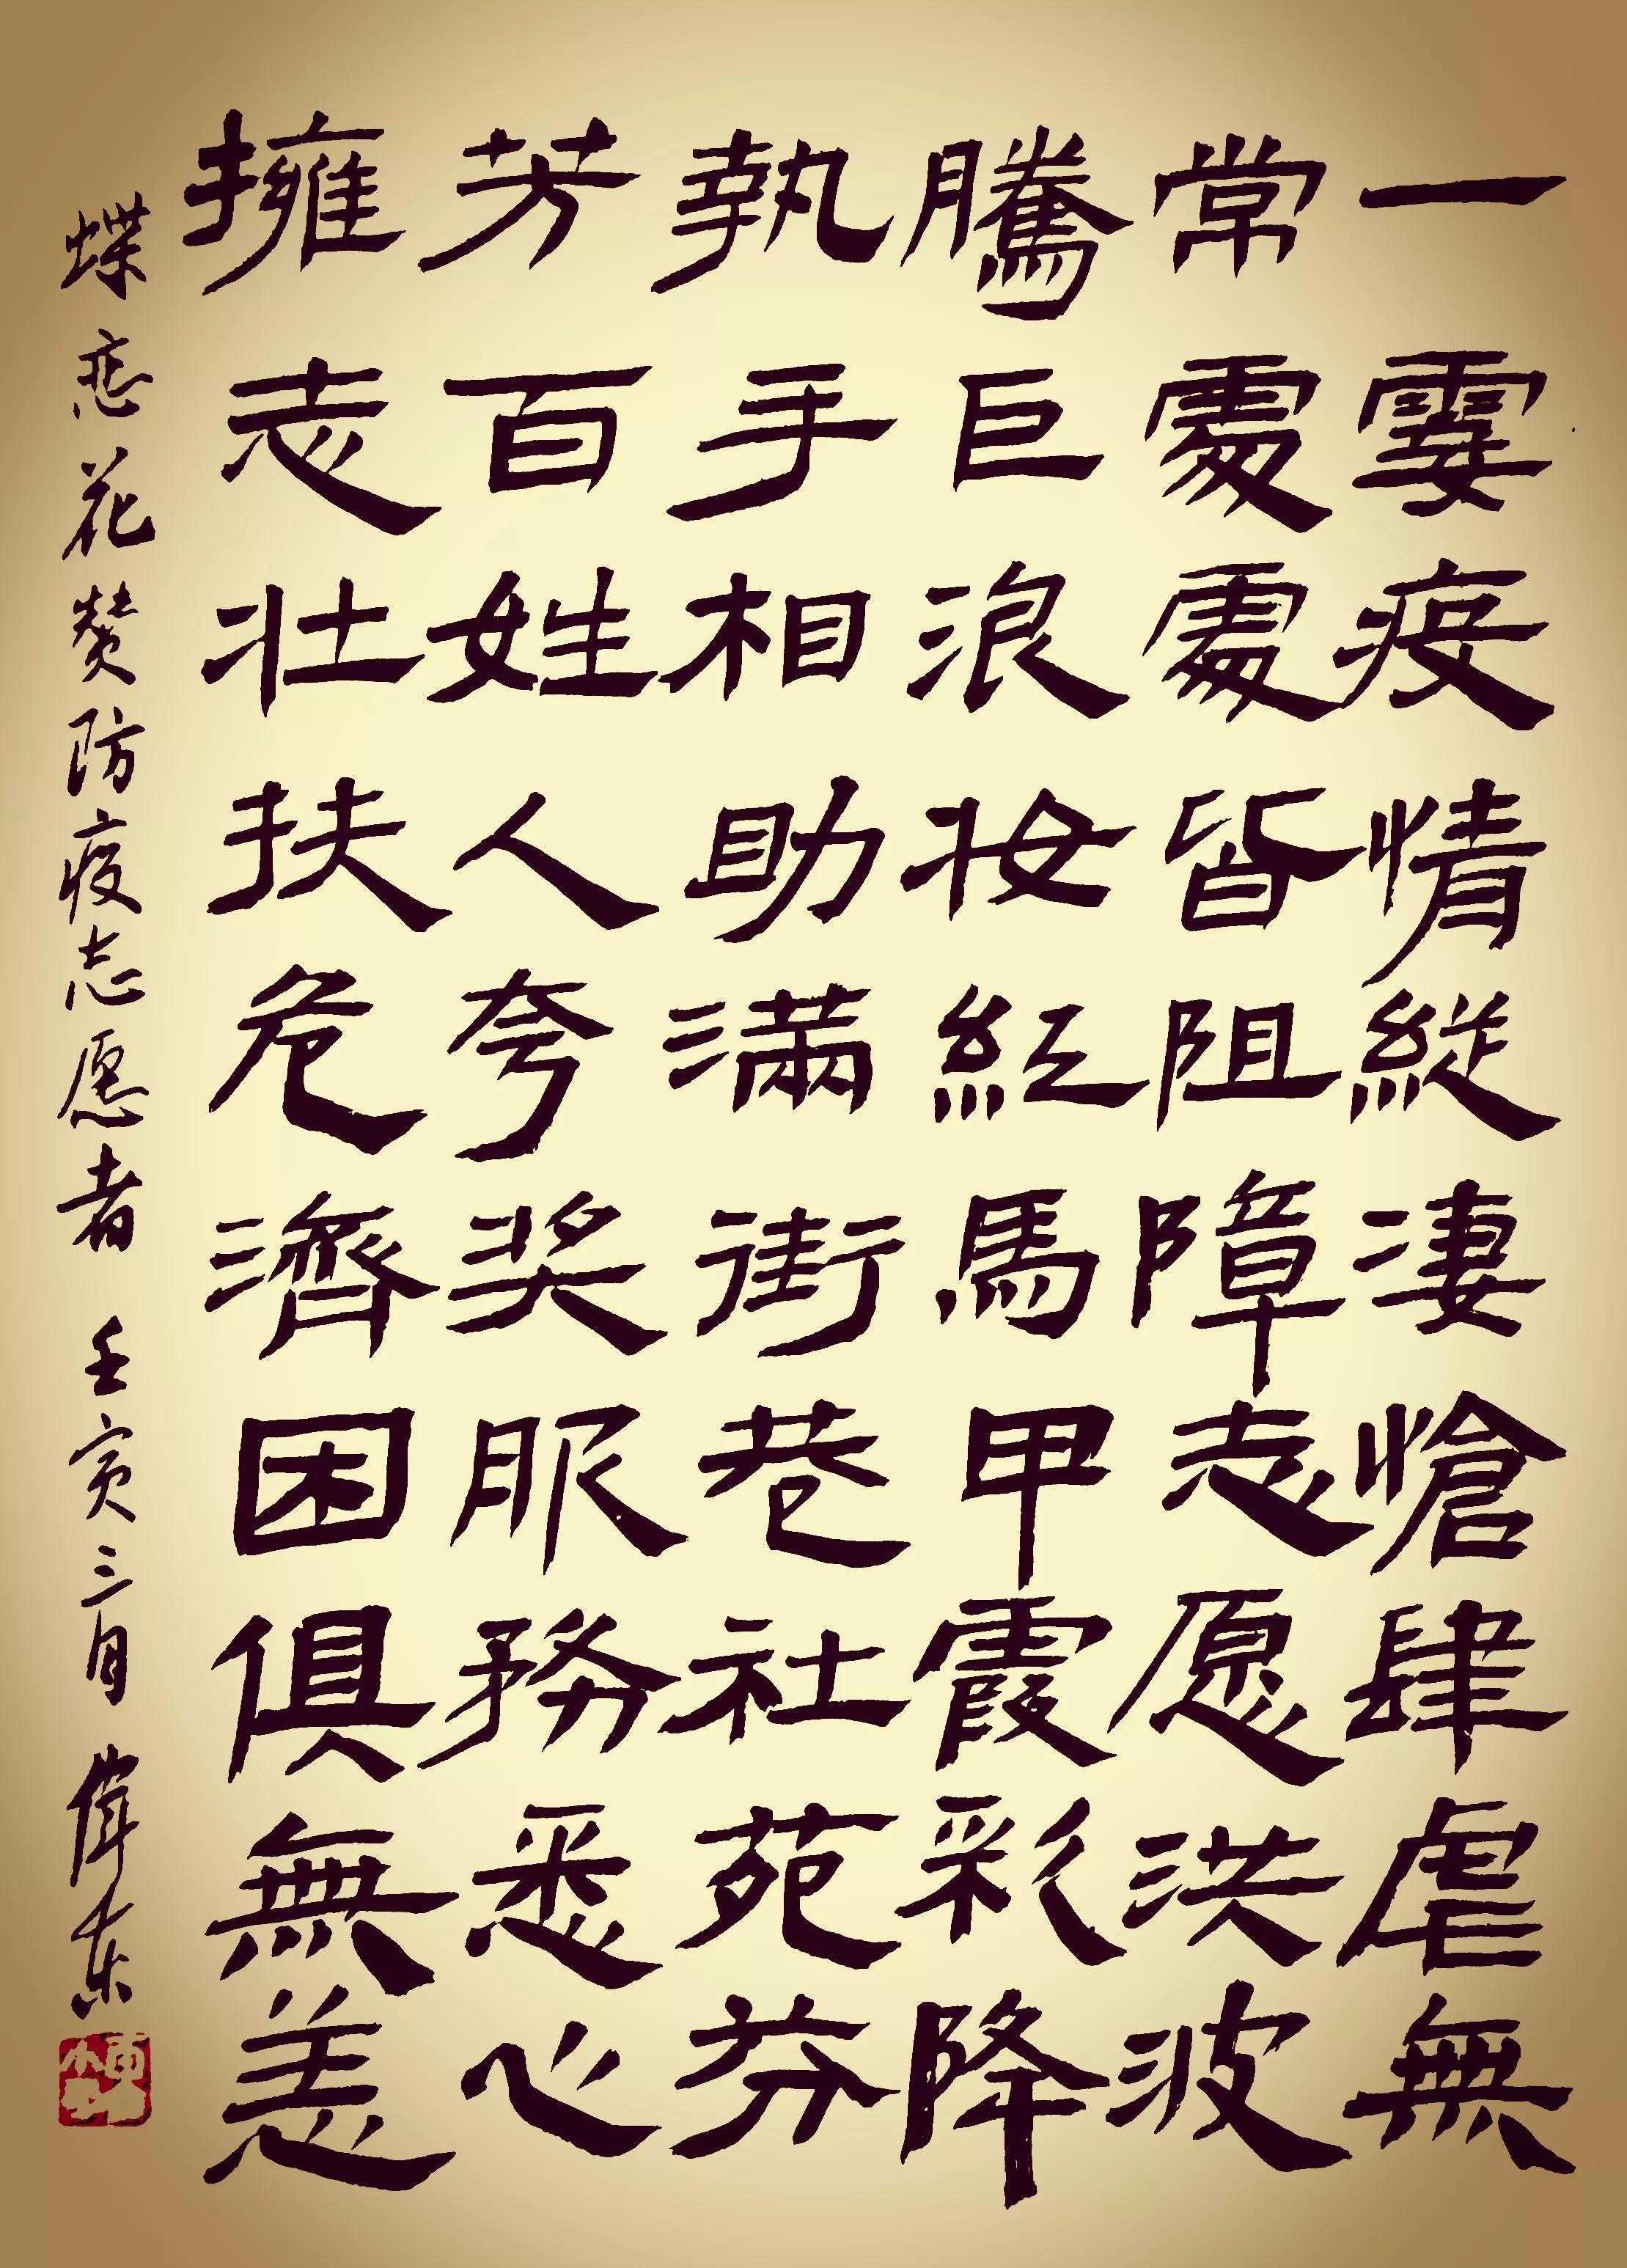 一霎疫情縱淒愴肆虐無
常處處皆阻障志愿洪波
騰巨浪妝紅馬甲霞彩降
執手相助滿街巷社苑芬
芳百姓人夸奖服務悉心
擁志壯扶危濟困俱無恙
蝶恋花赞防疫志愿者 壬寅三月 偉东